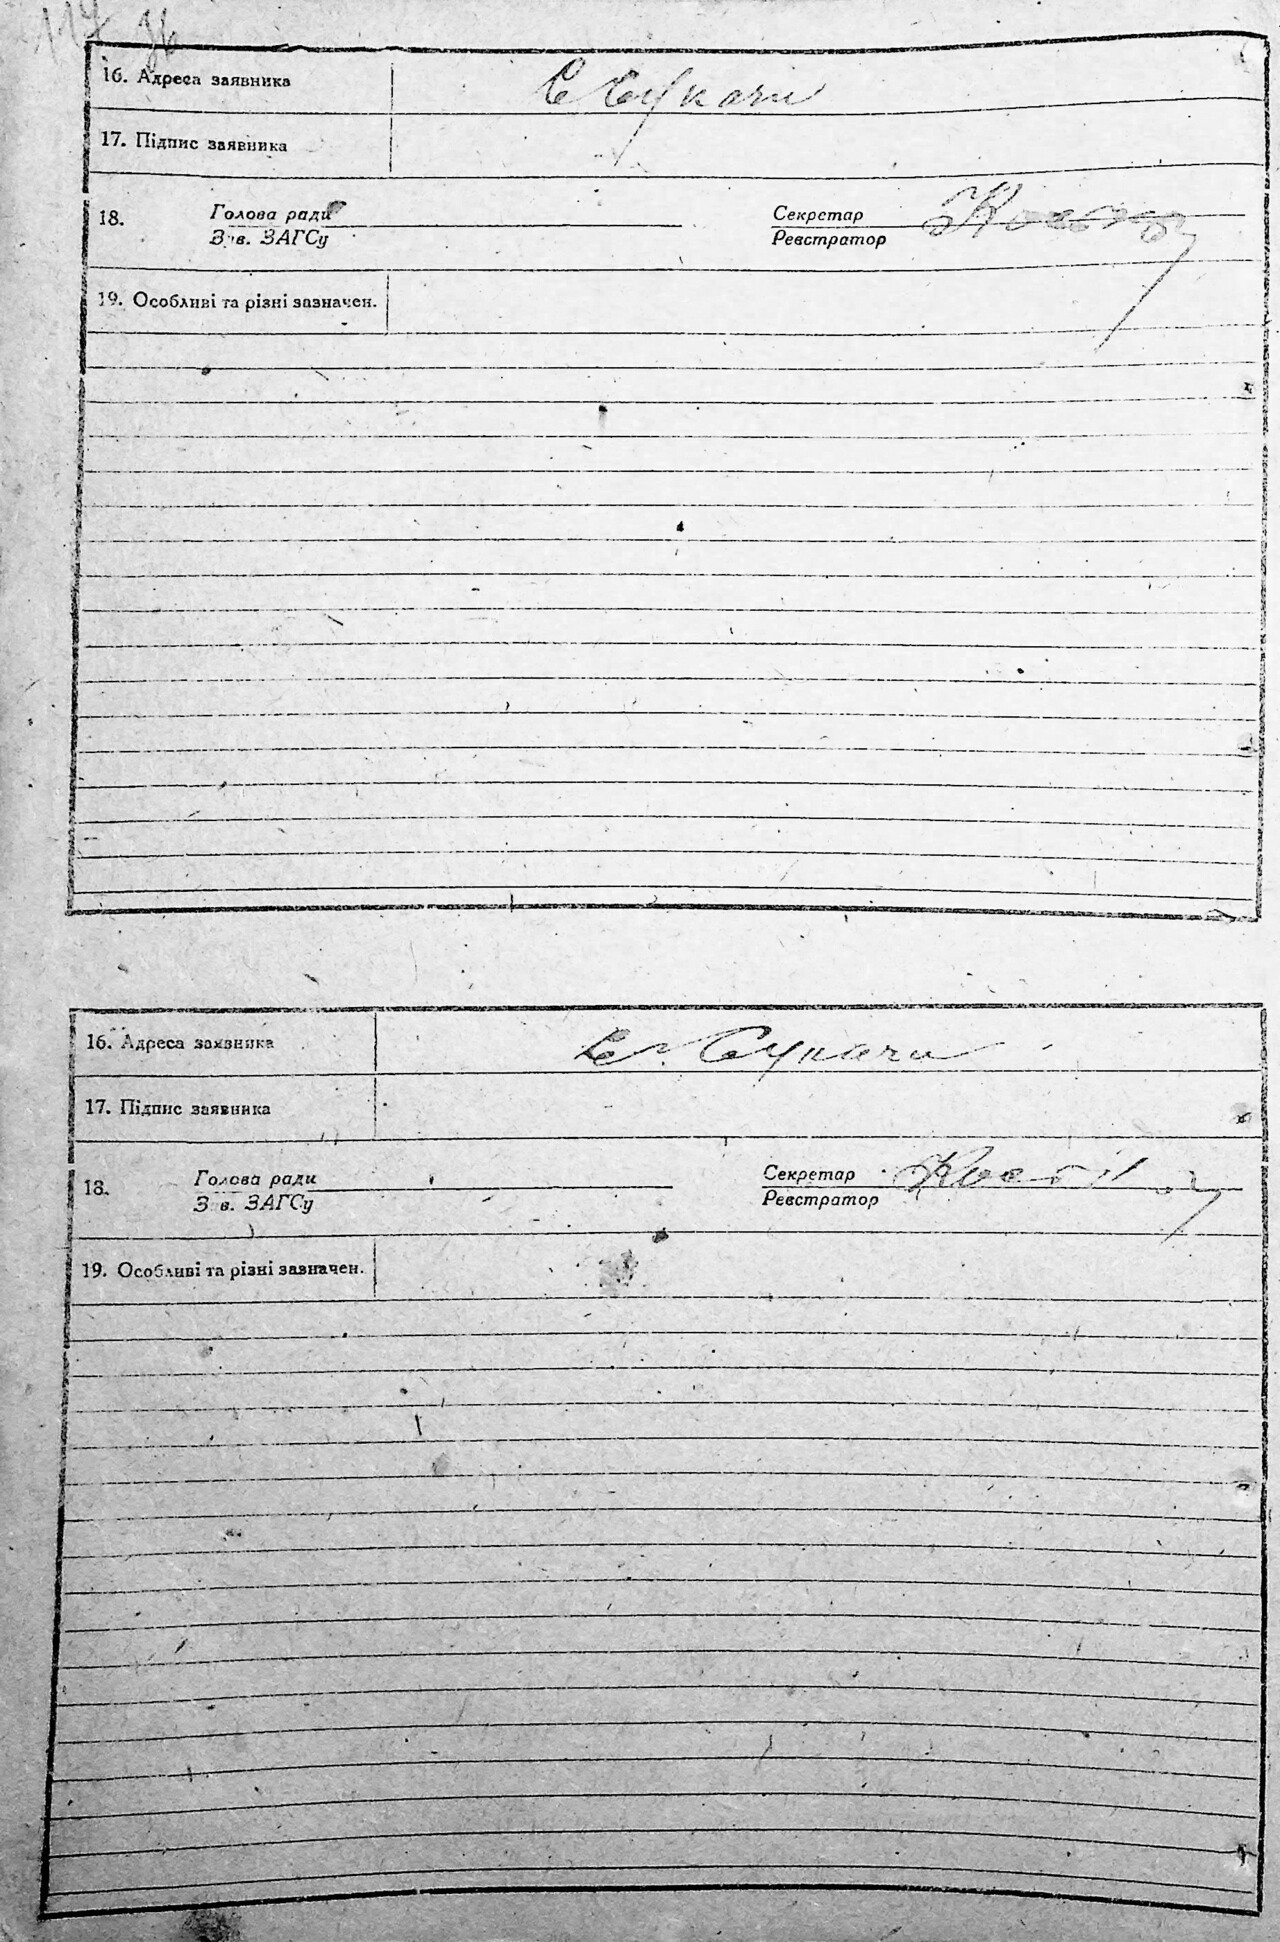 117
16. Адреса заявника С Сукачи
17. Підпис заявника
18. Голова ради Секретар
Зав. ЗАГСу Реєстратор
19. Особливі та різні зазначен.
16. Адреса заявника С. Сукачи
17. Підпис заявника
18. Голова ради Секретар
Зав. ЗАГСу Реєстратор
19. Особливі та різні зазначен.